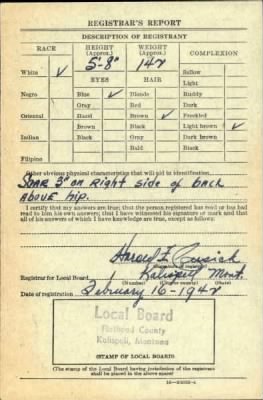 REGISTRAR'S REPORT
DESCRIPTION OF REGISTRANT
RACE HEIGHT (Approx.) WEIGHT (Approx.) COMPLEXION
5'-8" 142
White ✓ Sallow
EYES HAIR Light
Negro Blue ✓ Blonde Ruddy
Gray Red Dark
Oriental Hazel Brown ✓ Freckled
Brown Black Light brown ✓
Indian Black Gray Dark brown
Bald Black
Filipino
Other obvious physical characteristics that will aid in identification
SCAR 3" on Right side of back
ABOVE hip.
I certify that my answers are true; that the person registered has read or has had
read to him his own answers; that I have witnessed his signature or mark and that
all of his answers of which I have knowledge are true, except as follows:
Harold
Registrar for Local Board Kalispell Mont.
(Number) (City or county) (State)
Date of registration February 16-1942
Local Board
Flathead County
Kalispell, Montana
(STAMP OF LOCAL BOARD)
(The stamp of the Local Board having jurisdiction of the registrant
shall be placed in the above space)